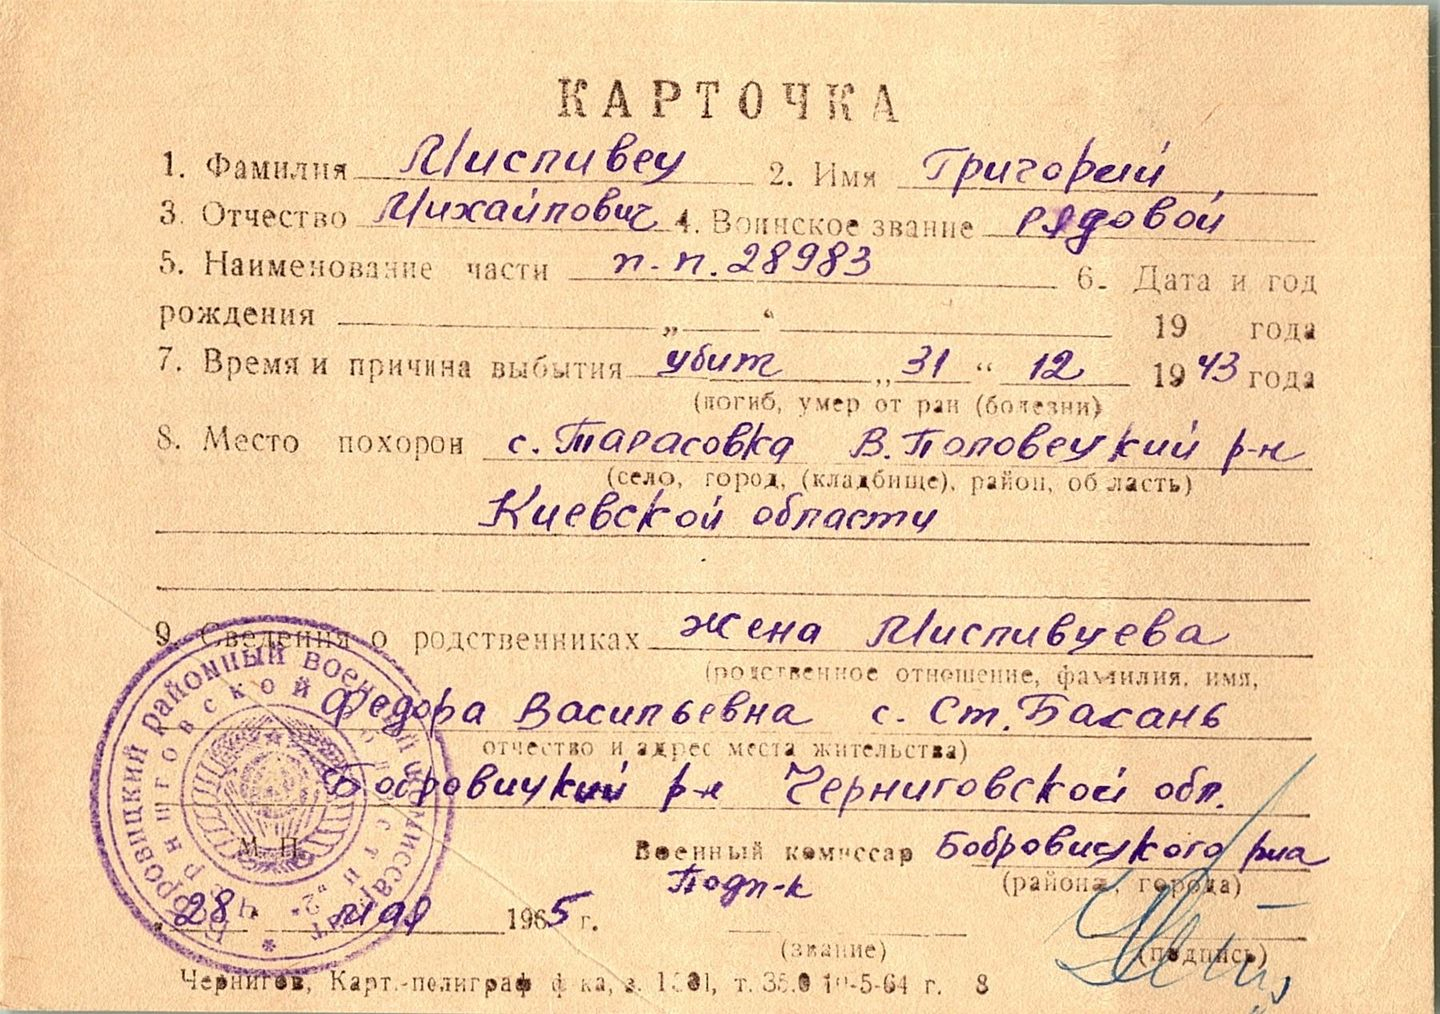 КАРТОЧКА
1. Фамилия Миспивец 2. Имя Григорий
3. Отчество Михайлович 4. Воинское звание рядовой
5. Наименование части п.п. 28983 6. Дата и год
рождения „ “ 19 года
7. Время и причина выбытия убит „31“ 12 1943 года
(погиб, умер от ран (болезни)
8. Место похорон с. Тарасовка В. Половецкий р-н
(село, город, (кладбище), район, область)
Киевской области
9. Сведения о родственниках жена Миспивцева
(родственное отношение, фамилия, имя,
Федора Васильевна с. Ст. Басань
отчество и адрес места жительства)
Бобровицкий р-н Черниговской обл.
М. П.
Военный комиссар Бобровицкого р-на
Подп-к (района, города)
„28“ мая 1965 г.
(звание) (подпись)
Чернигов, Карт.-полиграф ф-ка, з. 1501, т. 35.0 10-5-64 г. 8
Бобровицкий районный военный комиссариат
Черниговской области „2“